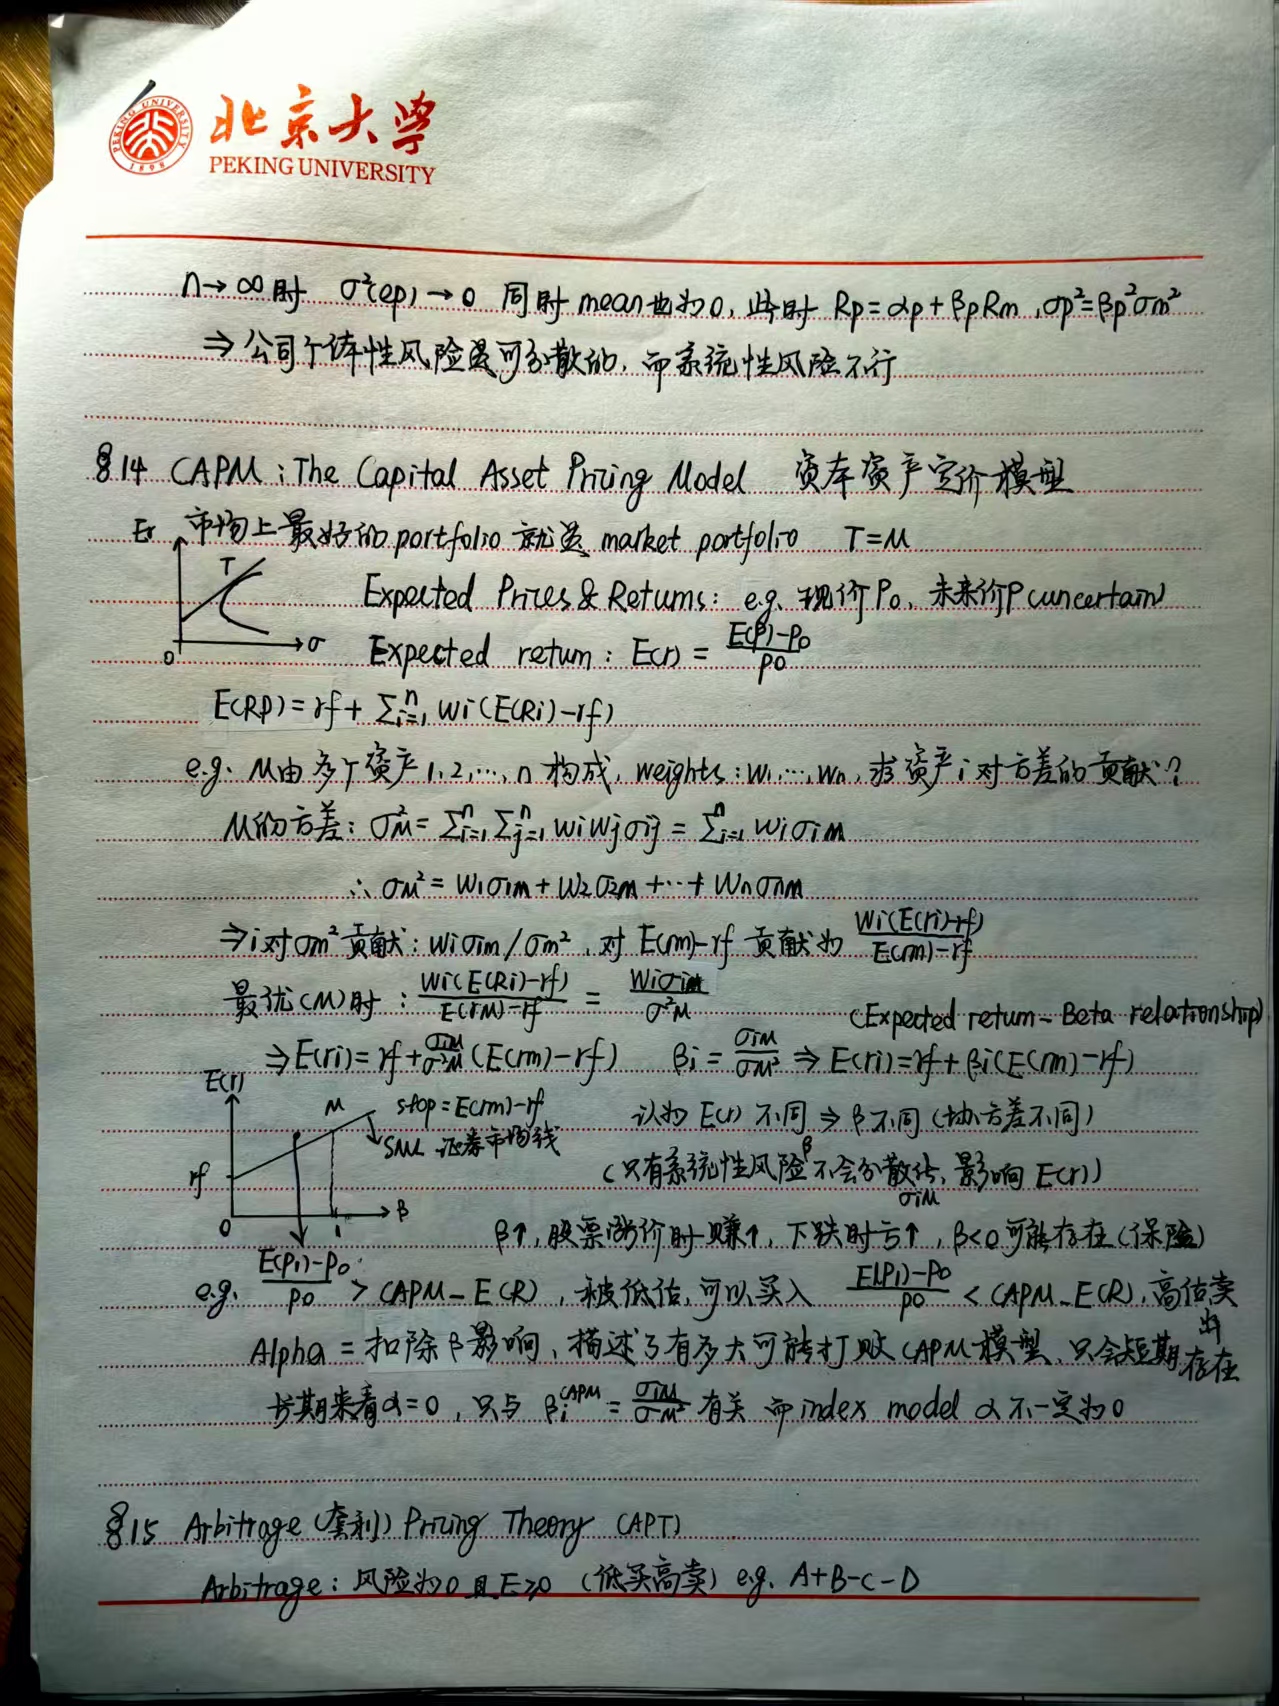 北京大学
PEKING UNIVERSITY
n→∞时 σ²(ep)→0 同时mean也为0, 此时 Rp=αp+βpRm, σp²=βp²σm²
⇒公司个体性风险是可分散的, 而系统性风险不行
§14 CAPM: The Capital Asset Pricing Model 资本资产定价模型
市场上最好的portfolio就是market portfolio T=M
Er
T
0
σ
Expected Prices & Returns: e.g. 现价P0, 未来价P(uncertain)
Expected return: E(r) = (E(P)-P0)/P0
E(Rp)=rf+Σⁿᵢ₌₁ wi(E(Ri)-rf)
e.g. M由多个资产1,2,…,n构成, weights: w1,…,wn, 求资产i对方差的贡献?
M的方差: σ²M=Σⁿᵢ₌₁Σⁿⱼ₌₁wiwjσij=Σⁿᵢ₌₁wiσiM
∴σM²=w1σ1m+w2σ2m+…+wnσnm
⇒i对σm²贡献: wiσim/σm², 对E(rm)-rf贡献为 wi(E(ri)-rf)/E(rm)-rf
最优(M)时: wi(E(Ri)-rf)/E(rM)-rf = wiσiM/σ²M
(Expected return-Beta relationship)
⇒E(ri)=rf+σiM/σ²M(E(rm)-rf) βi=σiM/σM² ⇒E(ri)=rf+βi(E(rm)-rf)
E(r)
M
slop=E(rm)-rf
SML 证券市场线
rf
0
1
β
认为E(r)不同⇒β不同(协方差不同)
(只有系统性风险β不会分散化, 影响E(r))
σiM
β↑, 股票涨价时赚↑, 下跌时亏↑, β<0可能存在(保险)
e.g. (E(Pi)-P0)/P0 > CAPM-E(R), 被低估, 可以买入 (E(Pi)-P0)/P0 < CAPM-E(R), 高估卖出
Alpha=扣除β影响, 描述了有多大可能打败CAPM模型, 只会短期存在
长期来看α=0, 只与βi^CAPM=σiM/σM²有关 而index model α不一定为0
§15 Arbitrage(套利) Pricing Theory (APT)
Arbitrage: 风险为0且E≥0 (低买高卖) e.g. A+B-C-D